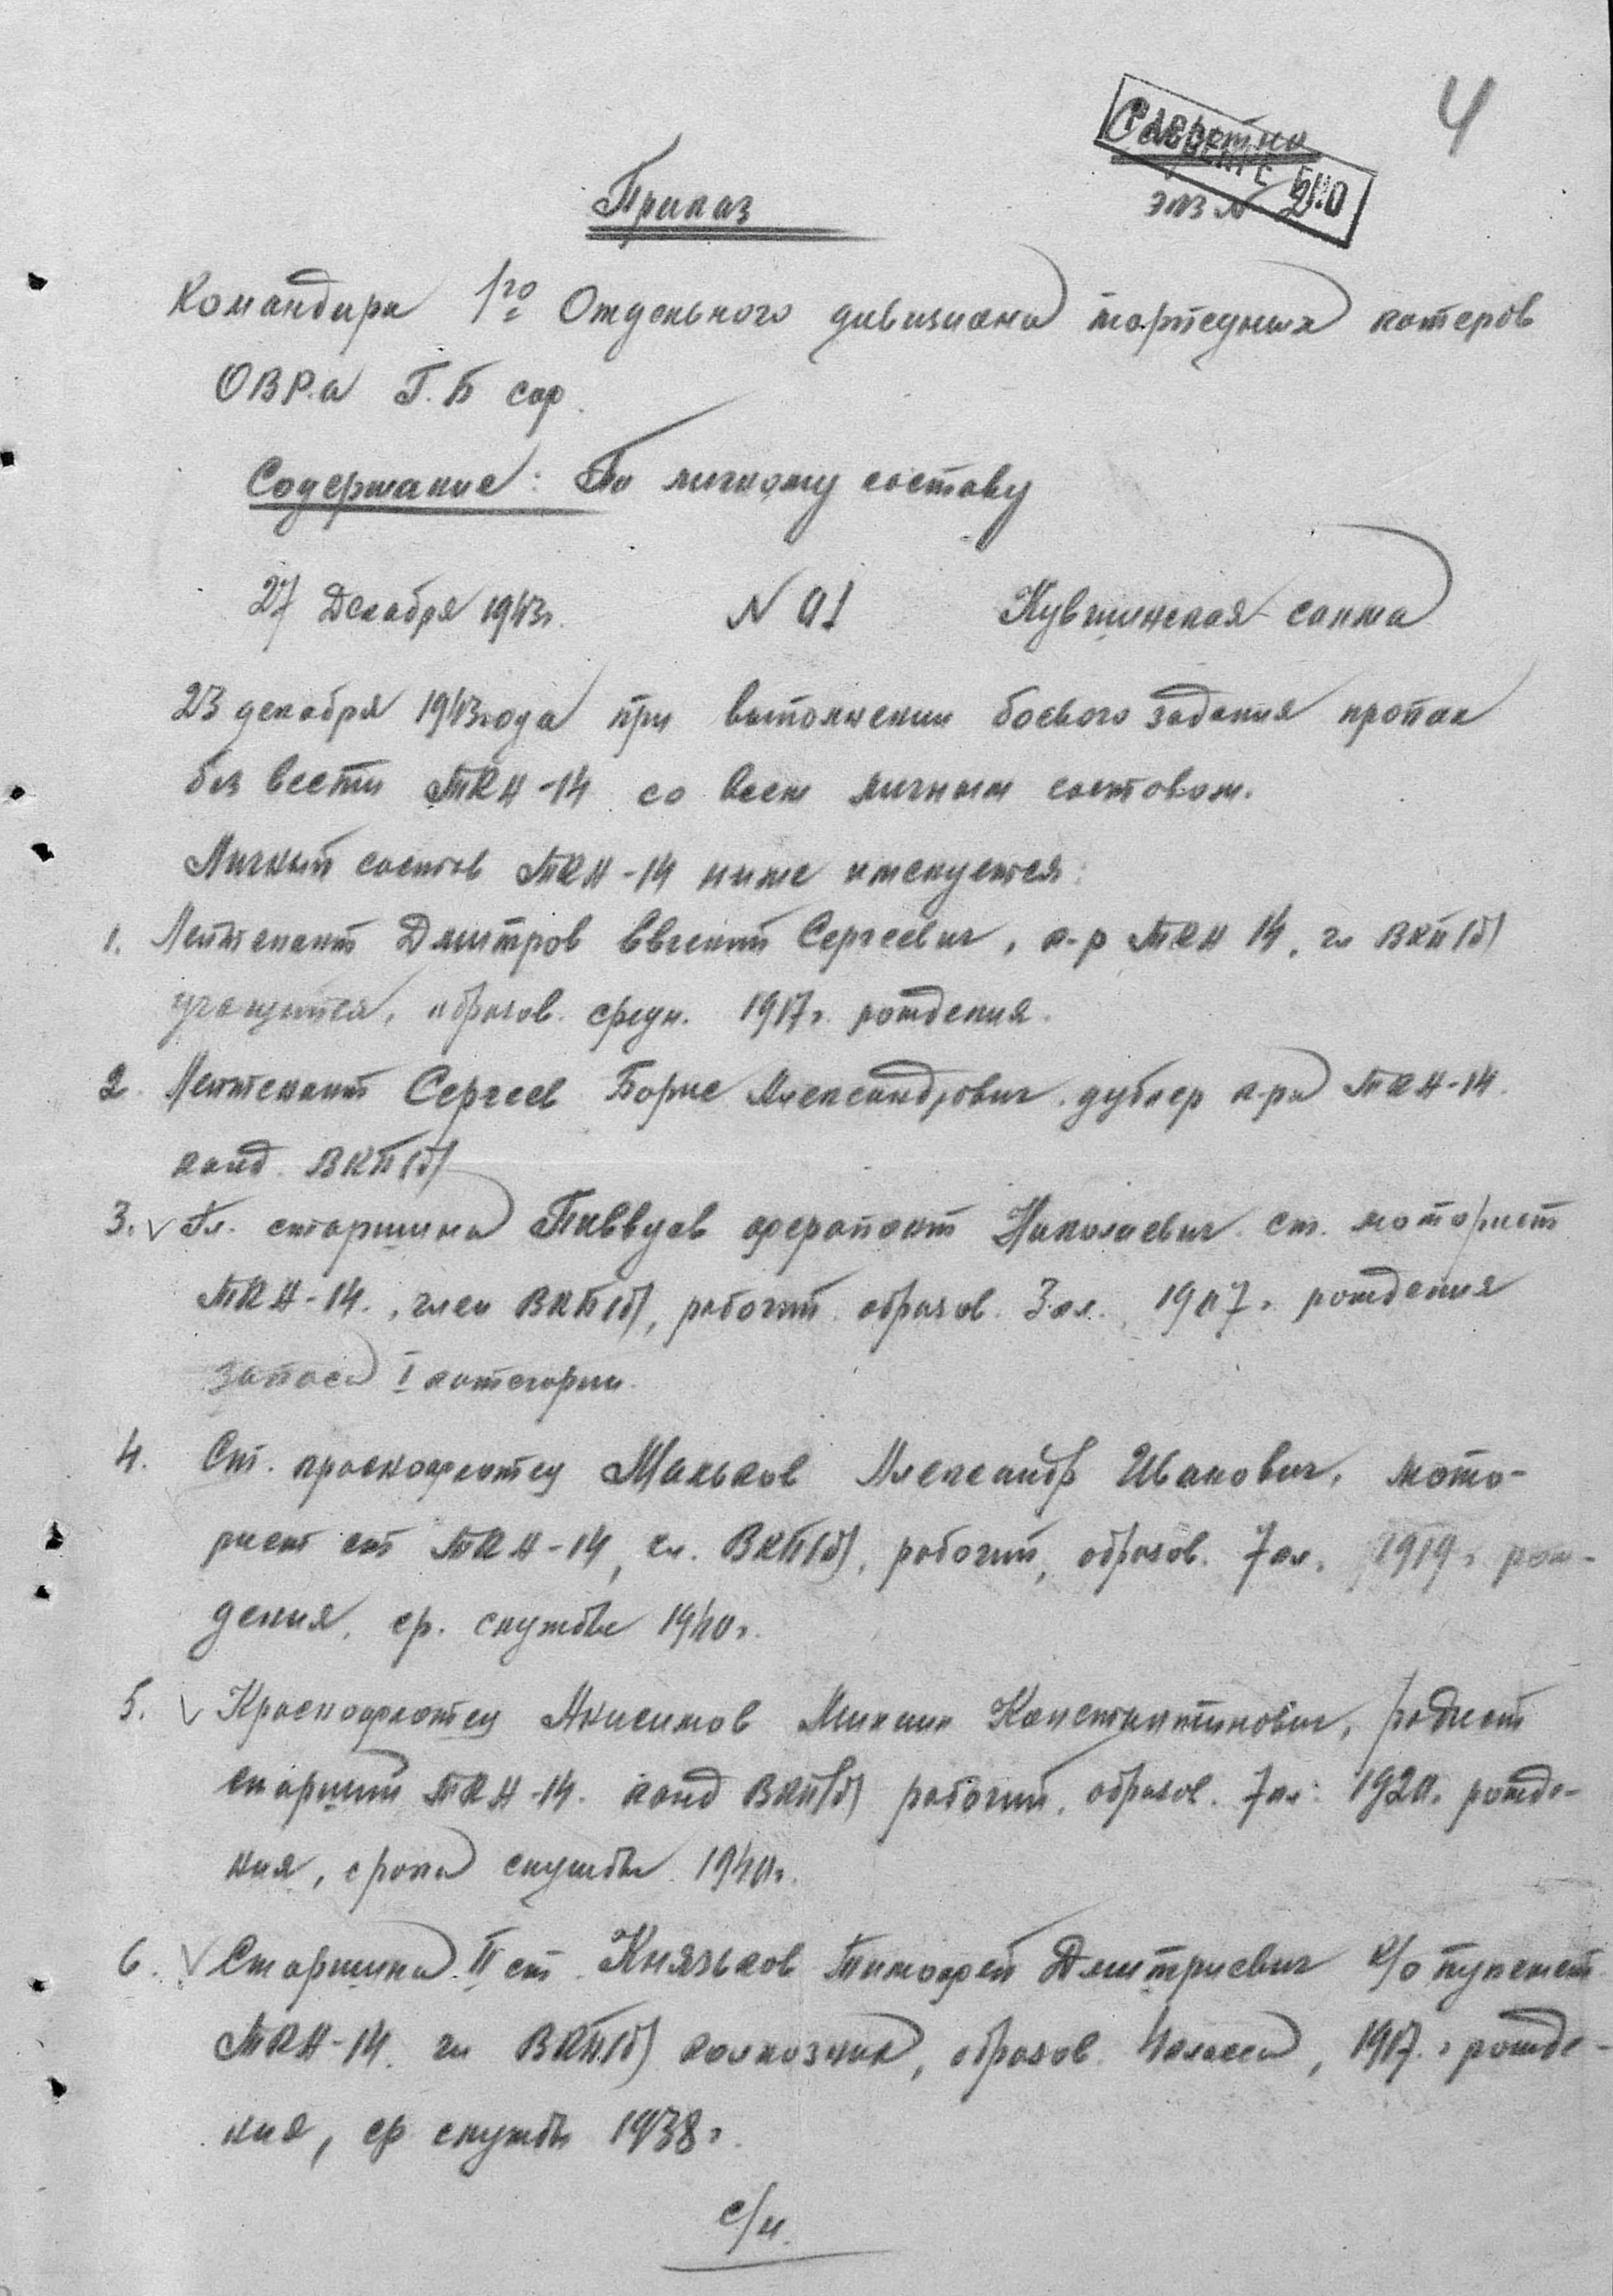 4
Секретно
экз N 2
Приказ
Командира 1го Отдельного дивизиона торпедных катеров
ОВР.а Г.Б сф.
Содержание: По личному составу
27 Декабря 1943г. N 01 Кувшинская салма
23 декабря 1943 года при выполнении боевого задания пропал
без вести ТКА-14 со всем личным составом.
Личный состав ТКА-14 ниже именуется:
1. Лейтенант Дмитров Евгений Сергеевич, к-р ТКА 14, чл ВКП(б)
учащийся, образов. средн. 1917г. рождения.
2. Лейтенант Сергеев Борис Александрович. дублер к-ра ТКА-14.
канд. ВКП(б)
3. Гл. старшина Ферапонт Николаевич. ст. моторист
ТКА-14., член ВКП(б), рабочий. образов. 3 кл., 1907г. рождения
запаса I категории.
4. Ст. краснофлотец Маньков Александр Иванович, мото-
рист ст ТКА-14, чл. ВКП(б), рабочий, образов. 7 кл. 1919г рож-
дения, ср. службы 1940г.
5. Краснофлотец Анисимов Михаил Константинович, радист
старший ТКА-14. канд ВКП(б) рабочий, образов. 7 кл. 1920. рожде-
ния, срока службы 1940г.
6. Старшина II ст. Князьков Тимофей Дмитриевич к/о пулемет.
ТКА-14. чл ВКП(б) колхозник, образов. 4 класса, 1917. г рожде-
ния, ср службы 1938г.
с/н.